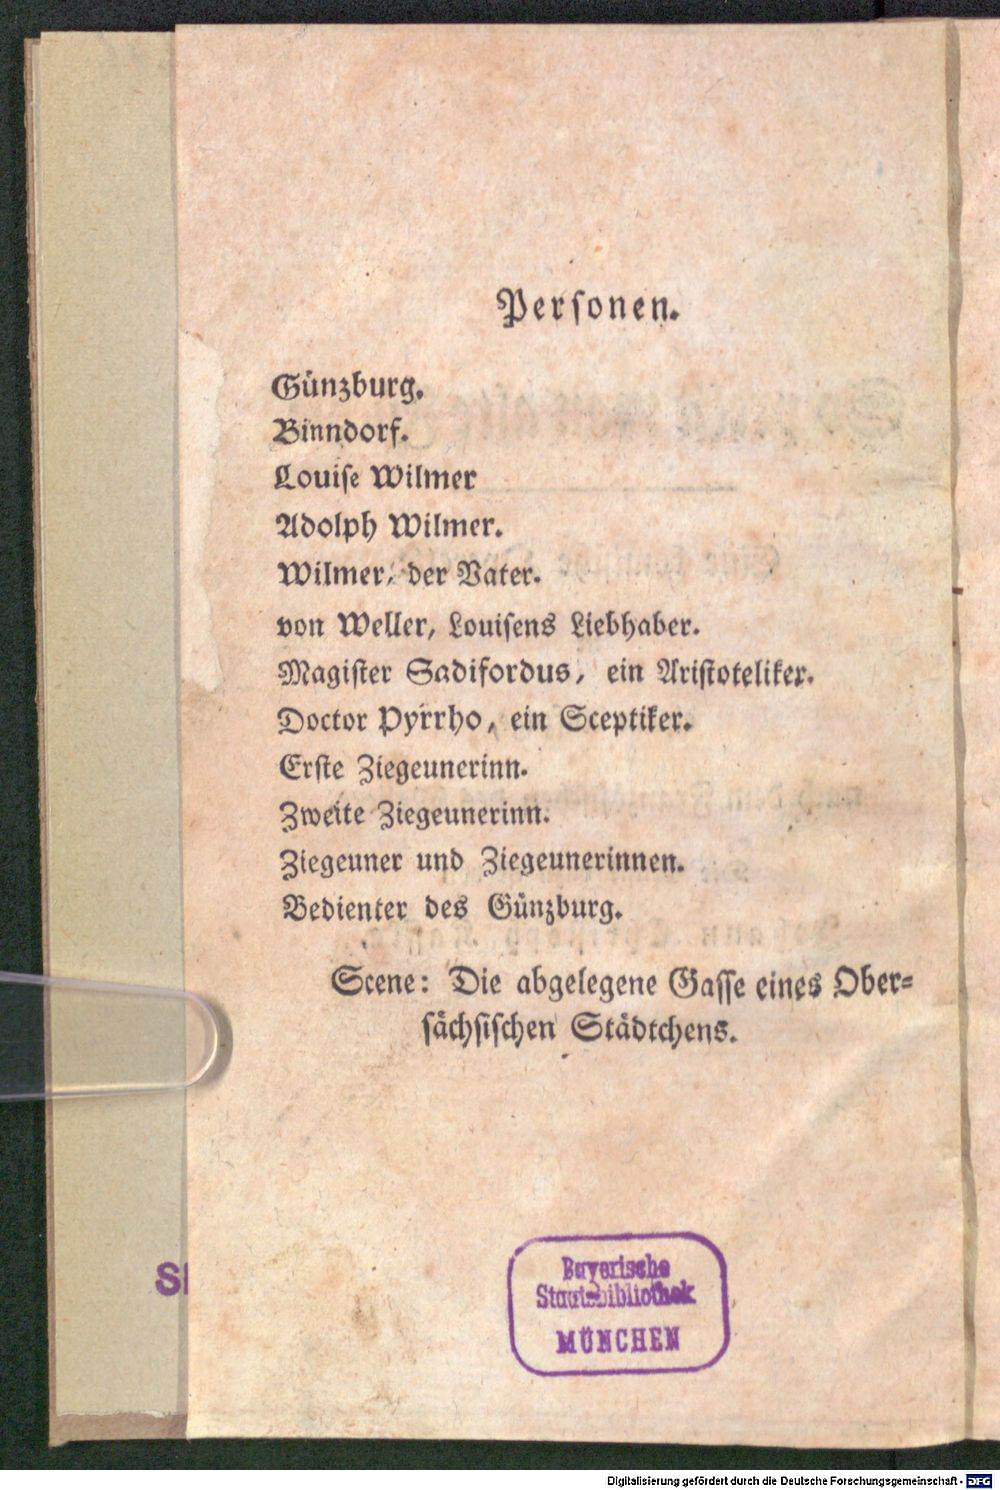 Perſonen.
Günzburg.
Binndorf.
Louiſe Wilmer
Adolph Wilmer.
Wilmer, der Vater.
von Weller, Louiſens Liebhaber.
Magiſter Sadifordus, ein Ariſtoteliker.
Doctor Pyrrho, ein Sceptiker.
Erſte Ziegeunerinn.
Zweite Ziegeunerinn.
Ziegeuner und Ziegeunerinnen.
Bedienter des Günzburg.
Scene: Die abgelegene Gaſſe eines Ober-
ſächſiſchen Städtchens.
Bayerische
Staatsbibliothek
MÜNCHEN
Digitalisierung gefördert durch die Deutsche Forschungsgemeinschaft - DFG